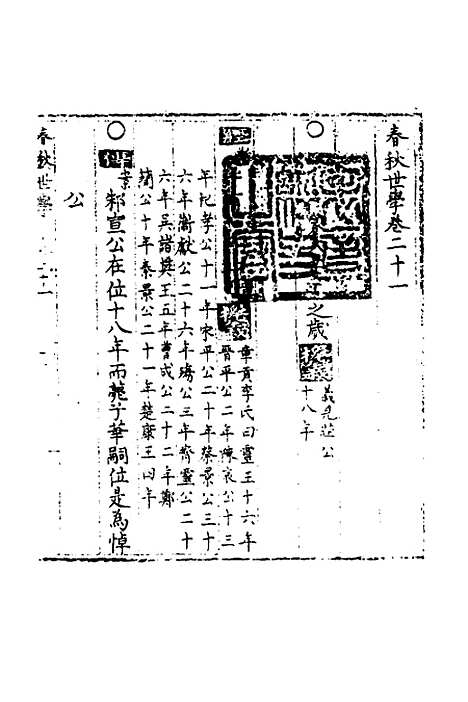 春秋世學卷二十一
○
之歲
義見莊公
十八年
經
章貢李氏曰靈王十六年
晉平公二年陳哀公十三
年杞孝公十一年宋平公二十年蔡景公三十
六年衛獻公二十六年殤公三年齊靈公二十
六年吳諸樊王五年曹成公二十二年鄭
簡公十年秦景公二十一年楚康王四年
○傳
邾宣公在位十八年而薨子華嗣位是為悼
公
春秋世學